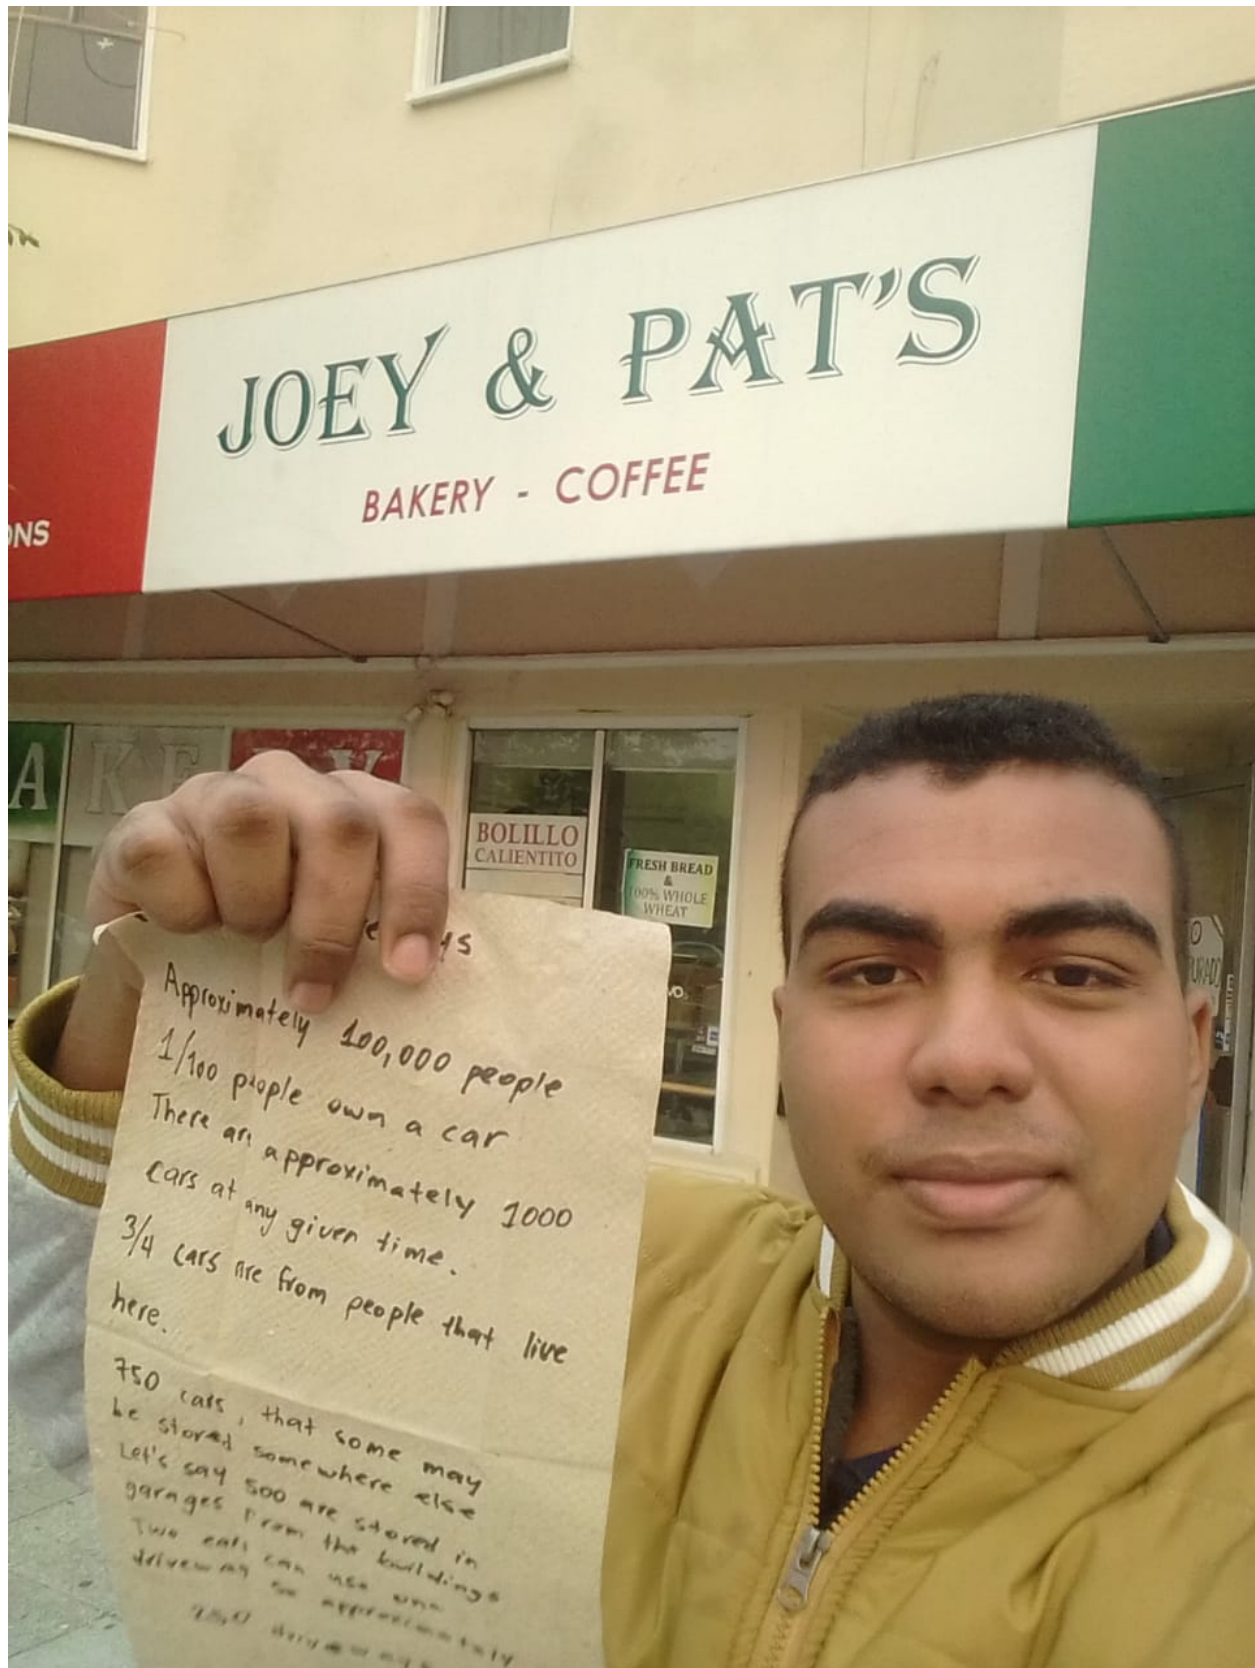 JOEY & PAT'S
BAKERY - COFFEE
ONS
AKERY
BOLILLO
CALIENTITO
FRESH BREAD
&
100% WHOLE
WHEAT
Approximately 100,000 people
1/100 people own a car
There are approximately 1000
cars at any given time.
3/4 cars are from people that live
here.
750 cars, that some may
be stored somewhere else
Let's say 500 are stored in
garages from the buildings
Two cars can use one
driveway so approximately
250 driveways